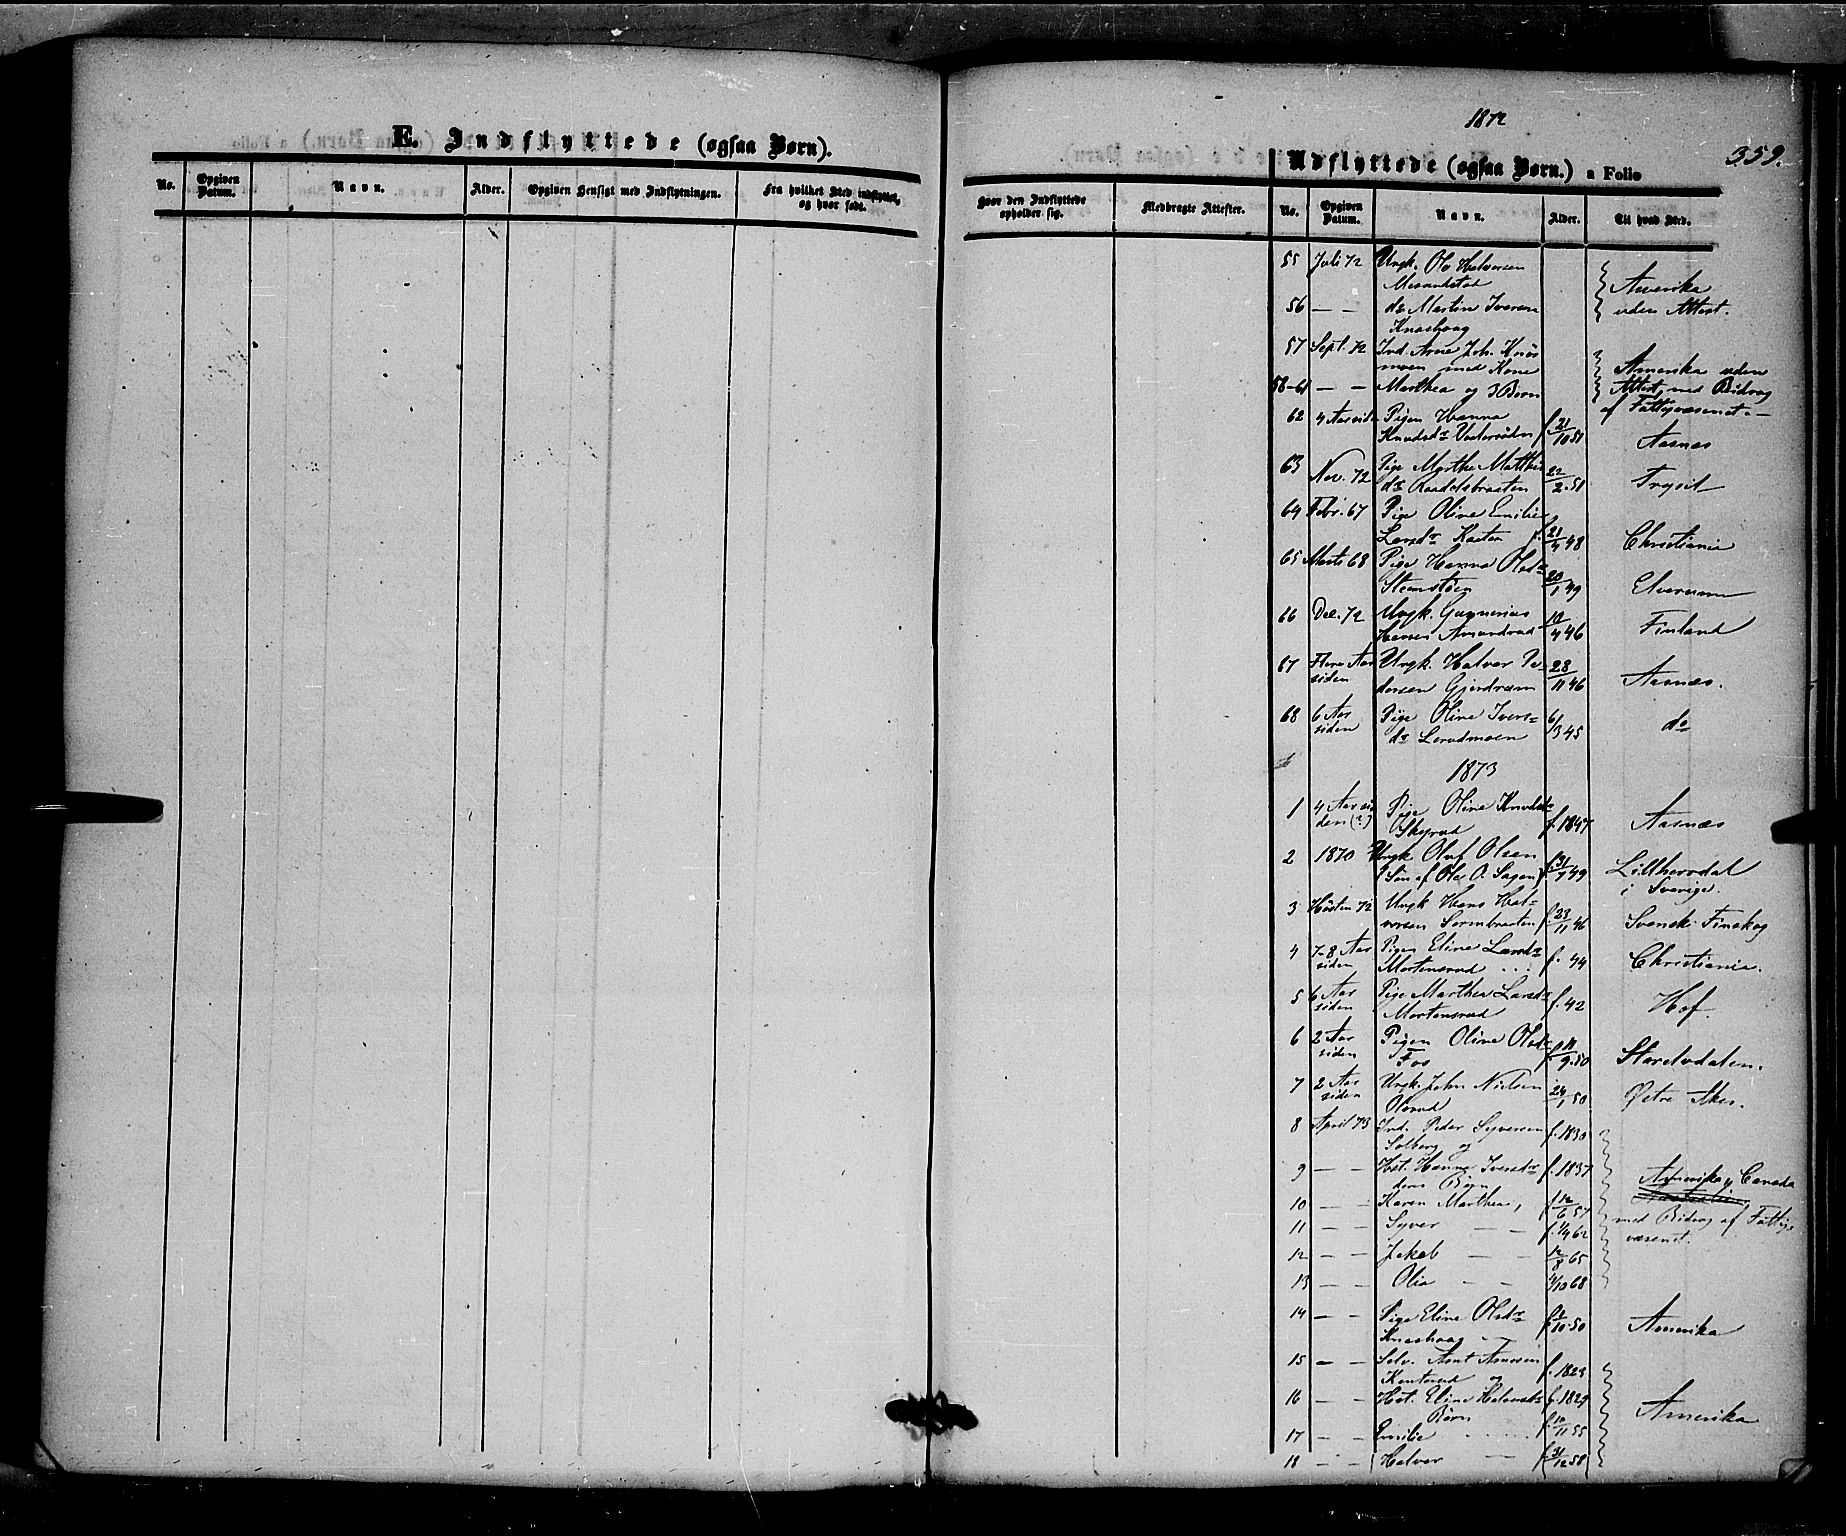 E. Indflyttede (ogsaa Børn).
No.
Opgiven Datum.
Navn.
Alder.
Opgiven Hensigt med Indflytningen.
Fra hvilket Sted indflyttet, og hvor født.
1872
359.
Udflyttede (ogsaa Børn.) a Folio
Hvor den Indflyttede opholder sig.
Medbragte Attester.
No.
Opgiven Datum.
Navn.
Alder.
Til hvad Sted.
55 Juli 72 Ungk. Ole Halvorsen
Amerika
56 — — do Martin Iversen
uden Attest.
Knashaug
57 Sept. 72 Ind. Arne Joh.
moen med Kone
Amerika uden
58-61 — — Marthea og 3 Børn
Attest, med Bidrag
af Fattigvæsenet.—
62 4 Aar sid. Pigen Hanna
Knudsdr f. 21/10 51 Aasnæs
63 Nov. 72 Pige Marthe Matthis
dr 22/2 51 Trysil
64 Febr. 67 Pige Oline Emilie
Larsdr f. 21/4 48 Christiania
65 Marts 68 Pige Hanna Olsdr
20/1 49 Elverum
66 Dec. 72 Ungk. Gunnerius
Hansen Amundrud 10/4 46 Finland
67 Flere Aar Ungk. Halvor Pe-
siden dersen Gjerdrum 28/11 46 Aasnæs.
68 6 Aar Pige Oline Ivers-
siden dr 6/3 45 do
1873
1 4 Aar si- Pige Oline Knudsdr
den (?) Skyrud f. 1847 Aasnæs
2 1870 Ungk. Oluf Olsen
(Søn af Ole O. Sagen) f. 49 Lillherrdal
i Sverige.
3 Høsten 72 Ungk. Hans Hal-
vorsen f. 23/11 46 Svensk Finskog
4 7-8 Aar Pigen Eline Larsdr
siden Mortensrud f. 44 Christiania.
5 6 Aar Pige Marthea Larsdr
siden Mortensrud f. 42 Hof.
6 2 Aar Pigen Oline Olsdr
siden Fos f. 11/9 50
7 2 Aar Ungk. John Nielsen
siden 24/1 50 Østre Aker.
8 April 73 Ind. Peder Syversen f. 1830
Solberg og
9 — — Hst. Hanna Iversdr f. 1837
deres Børn
Amerika, Canada
10 — — Karen Marthea, f. 12/6 57
med Bidrag af Fattig-
11 — — Syver — — f. 1/9 62
væsenet.
12 — — Jakob — 12/8 65
13 — — Olia — — 4/10 68
14 — — Pige Eline Olsdr
Knashaug f. 50 Amerika
15 — — Selv. Arnt Arnesen f. 1823
og
16 — — Hst. Eline Halvorsdr f. 1829
Børn
Amerika
17 — — Emilie f. 10/11 55
18 — — Halvor — — f. 31/12 58